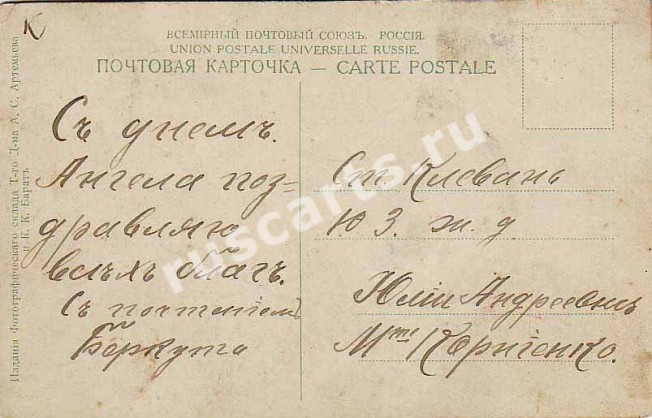 К
ВСЕМІРНЫЙ ПОЧТОВЫЙ СОЮЗЪ. РОССІЯ.
UNION POSTALE UNIVERSELLE RUSSIE.
ПОЧТОВАЯ КАРТОЧКА — CARTE POSTALE
Изданія Фотографическаго склада Т-го Д-ма А. С. Артемьева
и К. К. Баратъ
Съ днемъ.
Ангела поз-
дравляю
всѣхъ благъ.
Съ почтеніем
Беркута
Ст. Клевань
Ю З. ж. д
Юліи Андреевнѣ
Mme Корніенко.
ruscarts.ru